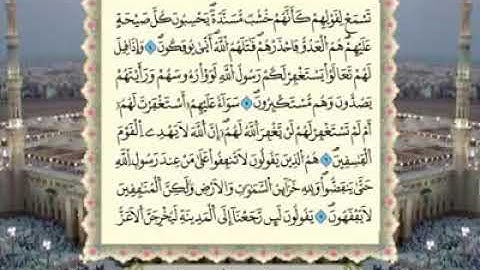 تَسْمَعْ لِقَوْلِهِمْ كَأَنَّهُمْ خُشُبٌ مُّسَنَّدَةٌ يَحْسِبُونَ كُلَّ صَيْحَةٍ
عَلَيْهِمْ هُمُ الْعَدُوُّ فَاحْذَرْهُمْ قَاتَلَهُمُ اللَّهُ أَنَّىٰ يُؤْفَكُونَ ۝٤ وَإِذَا قِيلَ
لَهُمْ تَعَالَوْا يَسْتَغْفِرْ لَكُمْ رَسُولُ اللَّهِ لَوَوْا رُءُوسَهُمْ وَرَأَيْتَهُمْ
يَصُدُّونَ وَهُم مُّسْتَكْبِرُونَ ۝٥ سَوَاءٌ عَلَيْهِمْ أَسْتَغْفَرْتَ لَهُمْ
أَمْ لَمْ تَسْتَغْفِرْ لَهُمْ لَن يَغْفِرَ اللَّهُ لَهُمْ إِنَّ اللَّهَ لَا يَهْدِي الْقَوْمَ
الْفَاسِقِينَ ۝٦ هُمُ الَّذِينَ يَقُولُونَ لَا تُنفِقُوا عَلَىٰ مَنْ عِندَ رَسُولِ اللَّهِ
حَتَّىٰ يَنفَضُّوا وَلِلَّهِ خَزَائِنُ السَّمَاوَاتِ وَالْأَرْضِ وَلَٰكِنَّ الْمُنَافِقِينَ
لَا يَفْقَهُونَ ۝٧ يَقُولُونَ لَئِن رَّجَعْنَا إِلَى الْمَدِينَةِ لَيُخْرِجَنَّ الْأَعَزُّ